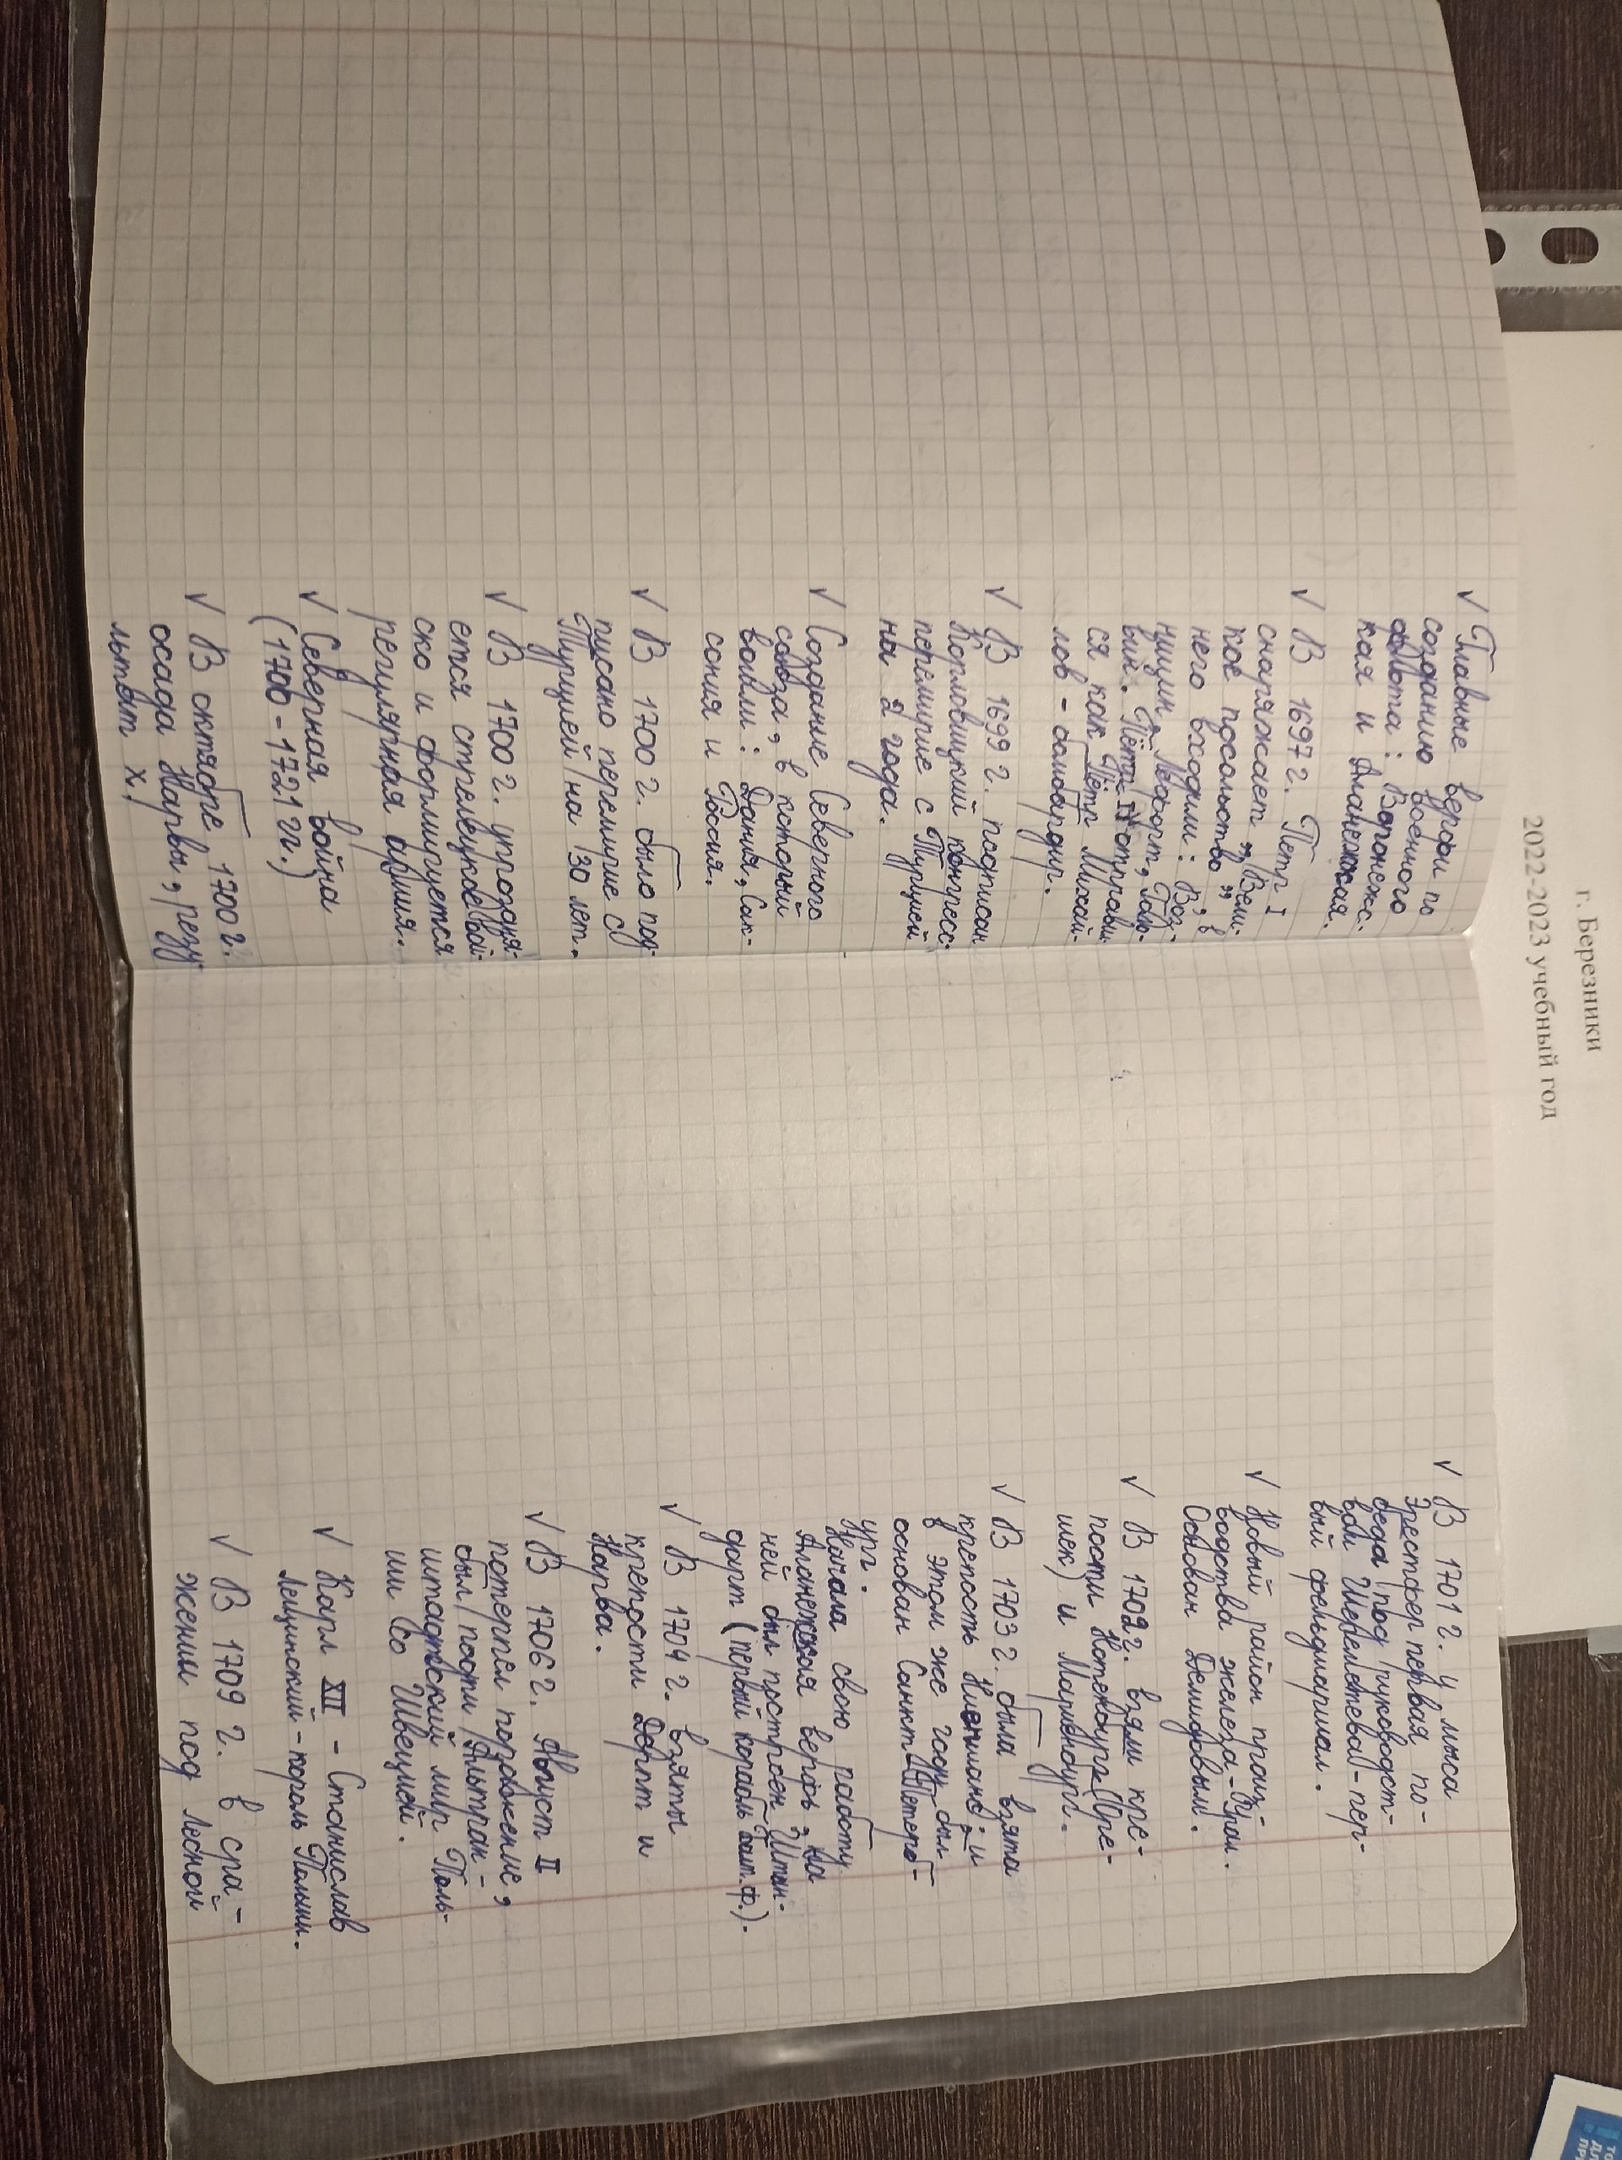 г. Березники
2022-2023 учебный год
✓ Главные верфи по
созданию военного
флота: Воронежс-
кая и Аланежская.
✓ В 1697 г. Петр I
снаряжает „Вели-
кое посольство”, в
него входили: Воз-
ницин, Лефорт, Голо-
вин. Пётр I отправил-
ся как Пётр Михай-
лов - бомбардир.
✓ В 1699 г. подписан
Карловицкий конгресс-
перемирие с Турцией
на 2 года.
✓ Создание Северного
союза, в который
вошли: Дания, Сак-
сония и Россия.
✓ В 1700 г. было под-
писано перемирие с
Турцией/на 30 лет.
✓ В 1700 г. упраздня-
ется стрелецкое вой-
ско и формируется
регулярная армия.
✓ Северная война
(1700-1721 гг.)
✓ В октябре 1700 г.
осада Нарвы, резу-
льтат х,
✓ В 1701 г. у мыса
Эрестфер первая по-
беда /под руководст-
вом Шереметева/-пер-
вый фельдмаршал.
✓ Новый район произ-
водства железа-Урал.
Основан Демидовым.
✓ В 1702 г. взяли кре-
пости Нотебург (Оре-
шек) и Мариенбург.
✓ В 1703 г. была взята
крепость Ниеншанс, и
в этом же году был
основан Санкт-Петерб-
ург.
Начала свою работу
Аланежская верфь, на
ней был построен „Штан-
дарт (первый корабль балт.ф.).
✓ В 1704 г. взяты
крепости Дерпт и
Нарва.
✓ В 1706 г. Август II
потерпел поражение,
был/подпи/Альтран-
штадтский мир Поль-
ши со Швецией.
✓ Карл XII - Станислав
Лещинский - король Польши.
✓ В 1709 г. в сра-
жении под Лесной